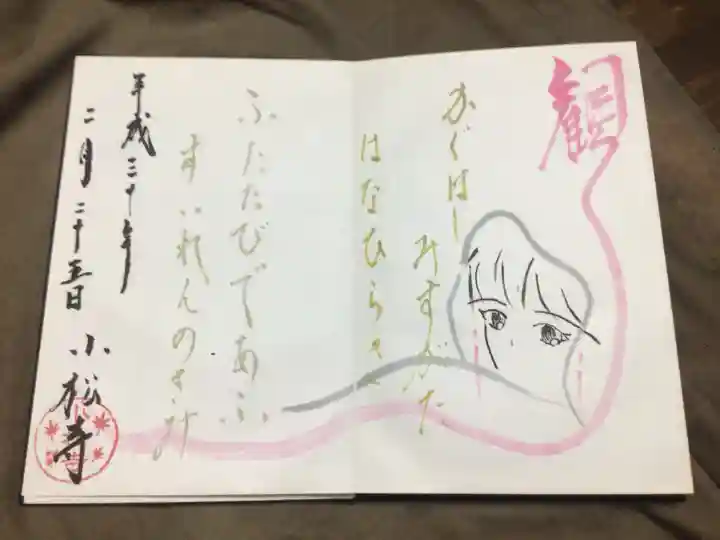 観
かぐはし
みすがた
はなひらき
ふたたびであふ
すいれんのきみ
平成三十年
二月二十五日 小松寺